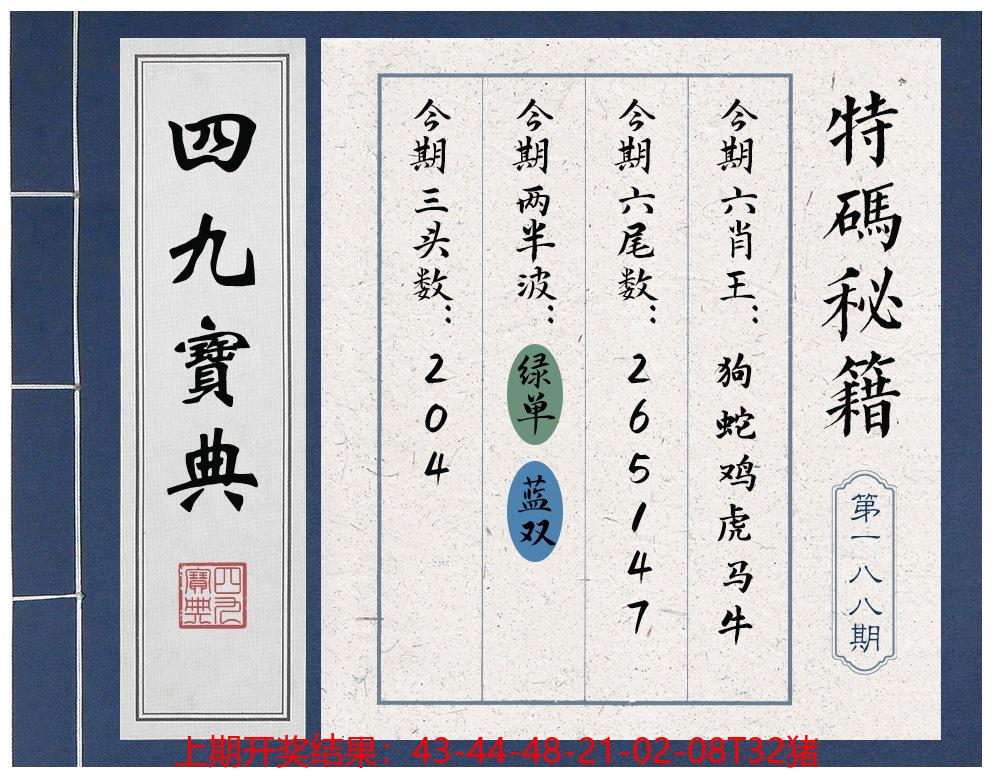 特碼秘籍
第一八八期
今期六肖王：狗蛇鸡虎马牛
今期六尾数：265147
今期两半波：绿单 蓝双
今期三头数：204
四九寶典
四九寶典
上期开奖结果：43-44-48-21-02-08T32猪